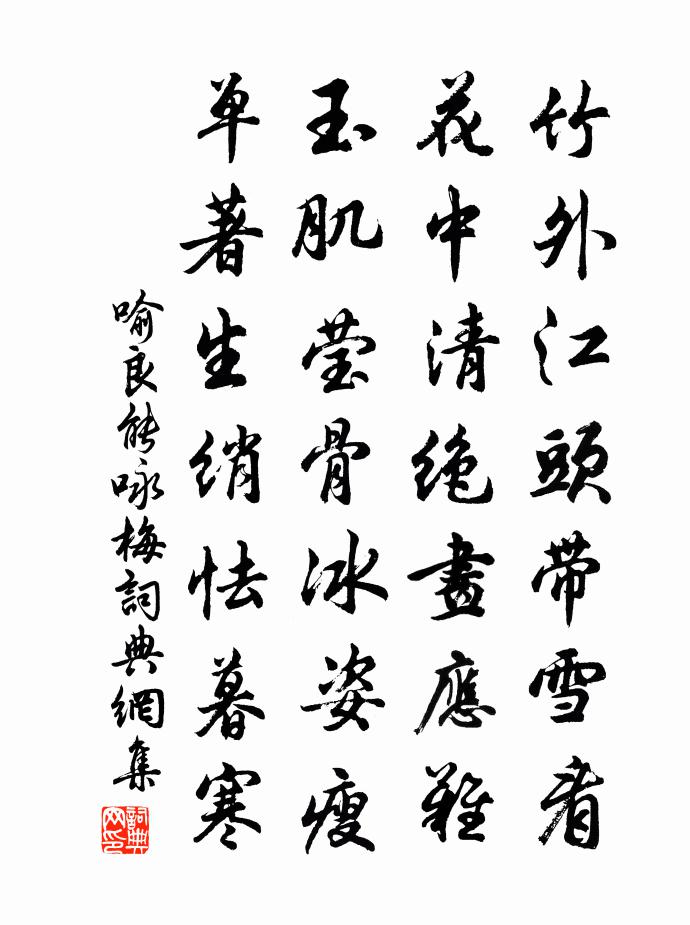 竹外江頭帶雪看
花中清絶畫應難
玉肌瑩骨冰姿瘦
单著生綃怯暮寒
喻良能咏梅詞典網集
詞典网印